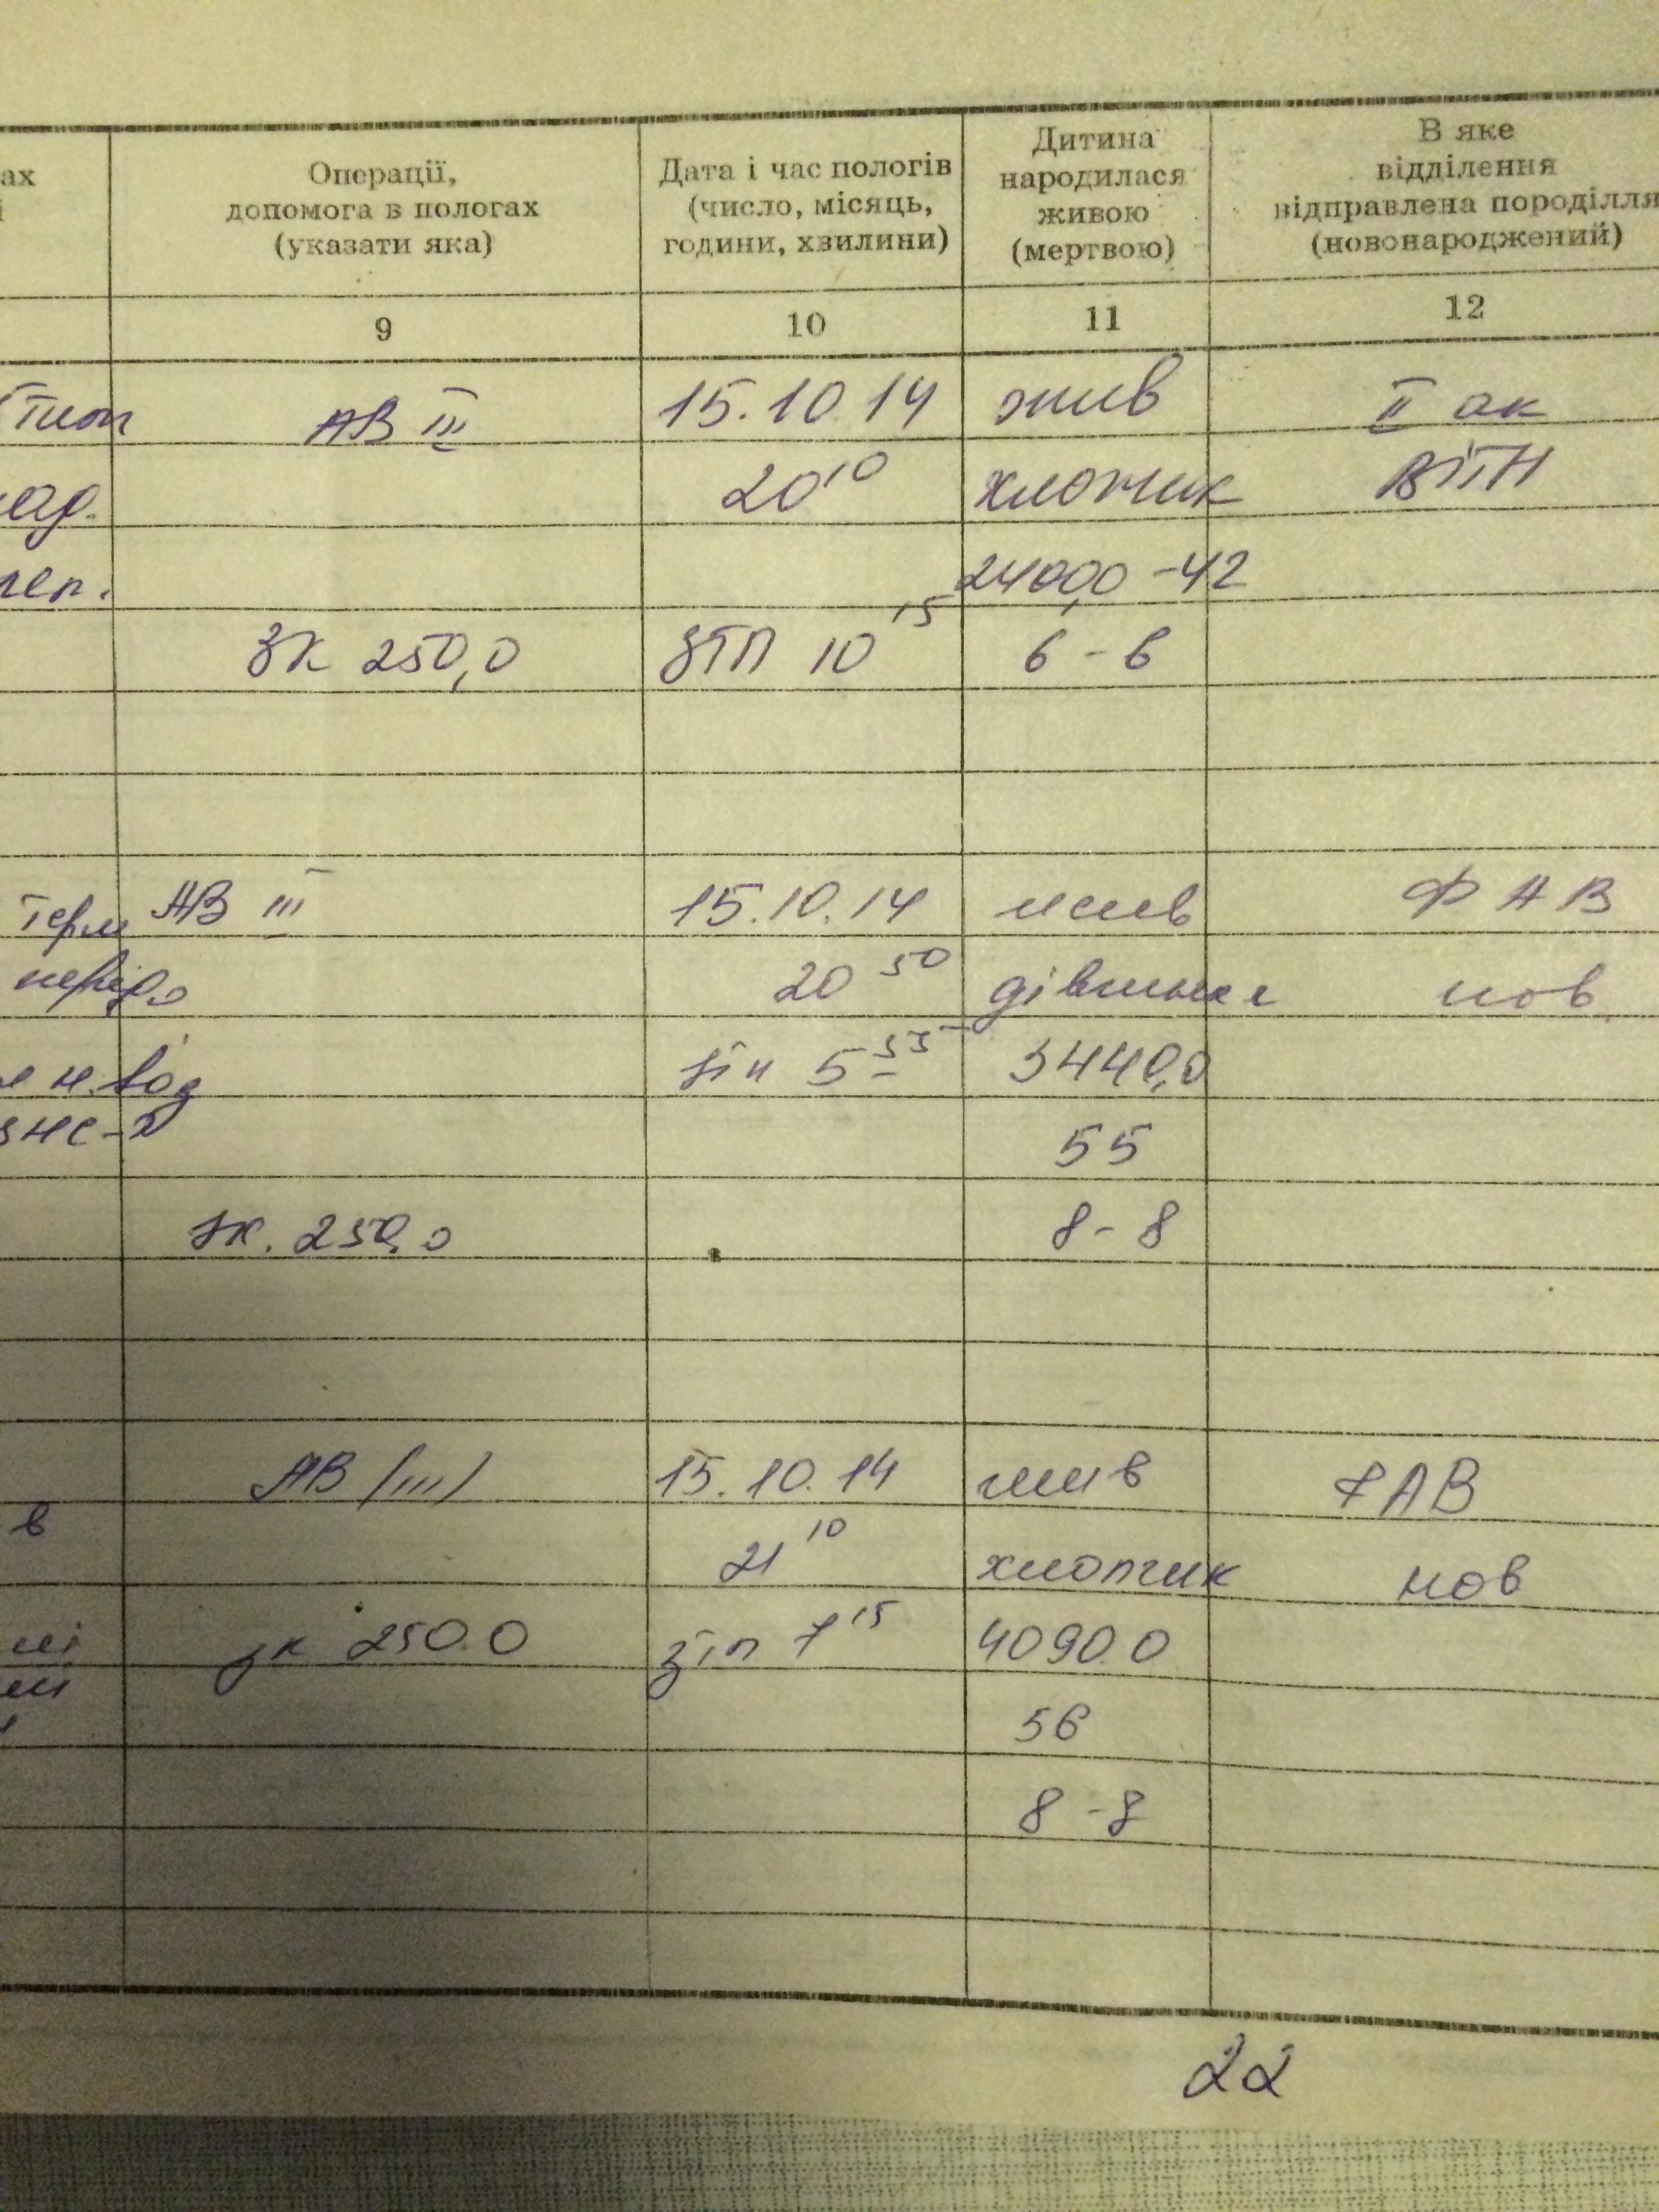 ах
і
Операції,
допомога в пологах
(указати яка)
Дата і час пологів
(число, місяць,
години, хвилини)
Дитина
народилася
живою
(мертвою)
В яке
відділення
відправлена породілля
(новонароджений)
9 10 11 12
АВ III 15.10.14 жив II ак
20 10 хлопчик ВІТН
2400,0 - 42
ЗК 250,0 ЗТП 10 15 6 - 6
терм АВ III 15.10.14 жив ФАВ
20 50 дівчинка нов
5 35 3440,0
55
зк. 250,0 8 - 8
АВ (III) 15.10.14 жив ФАВ
в 21 10 хлопчик нов
зк 250.0 зтп 7 15 4090.0
56
8 - 8
22